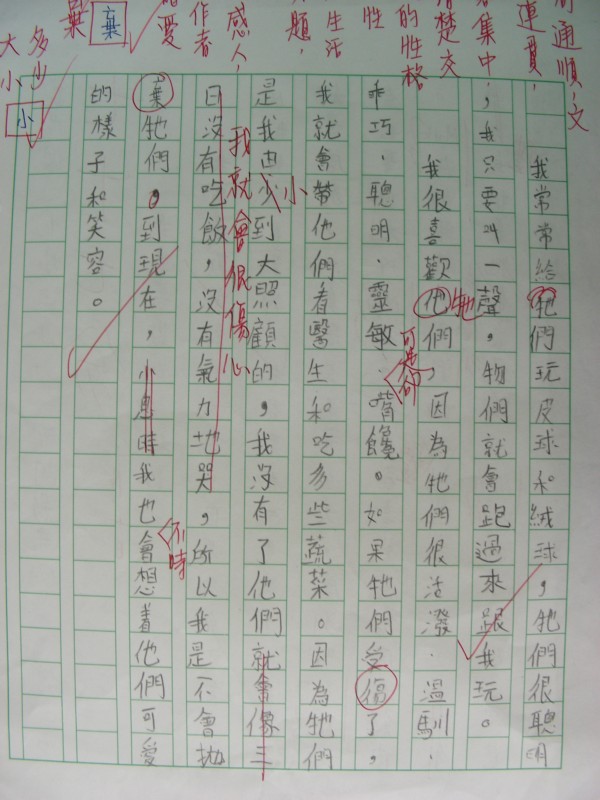 通順,文
連貫,
集中,
楚交
的性格
性
生活
題,
感人,
作者
愛
棄
多少
大小
小
我常常給牠們玩皮球和絨球,牠們很聰明
,我只要叫一聲,物們就會跑過來跟我玩。
我很喜歡他們,因為牠們很活潑.溫馴.
牠
乖巧.聰明.靈敏嘴饞。如果牠們受傷了,
可是卻
我就會帶他們看醫生和吃多些蔬菜。因為牠們
小
是我由少到大照顧的,我沒有了他們就會像三
我就會很傷心
日沒有吃飯,沒有氣力地哭,所以我是不會拋
棄牠們,到現在,小息時我也會想着他們可愛
不時
的樣子和笑容。